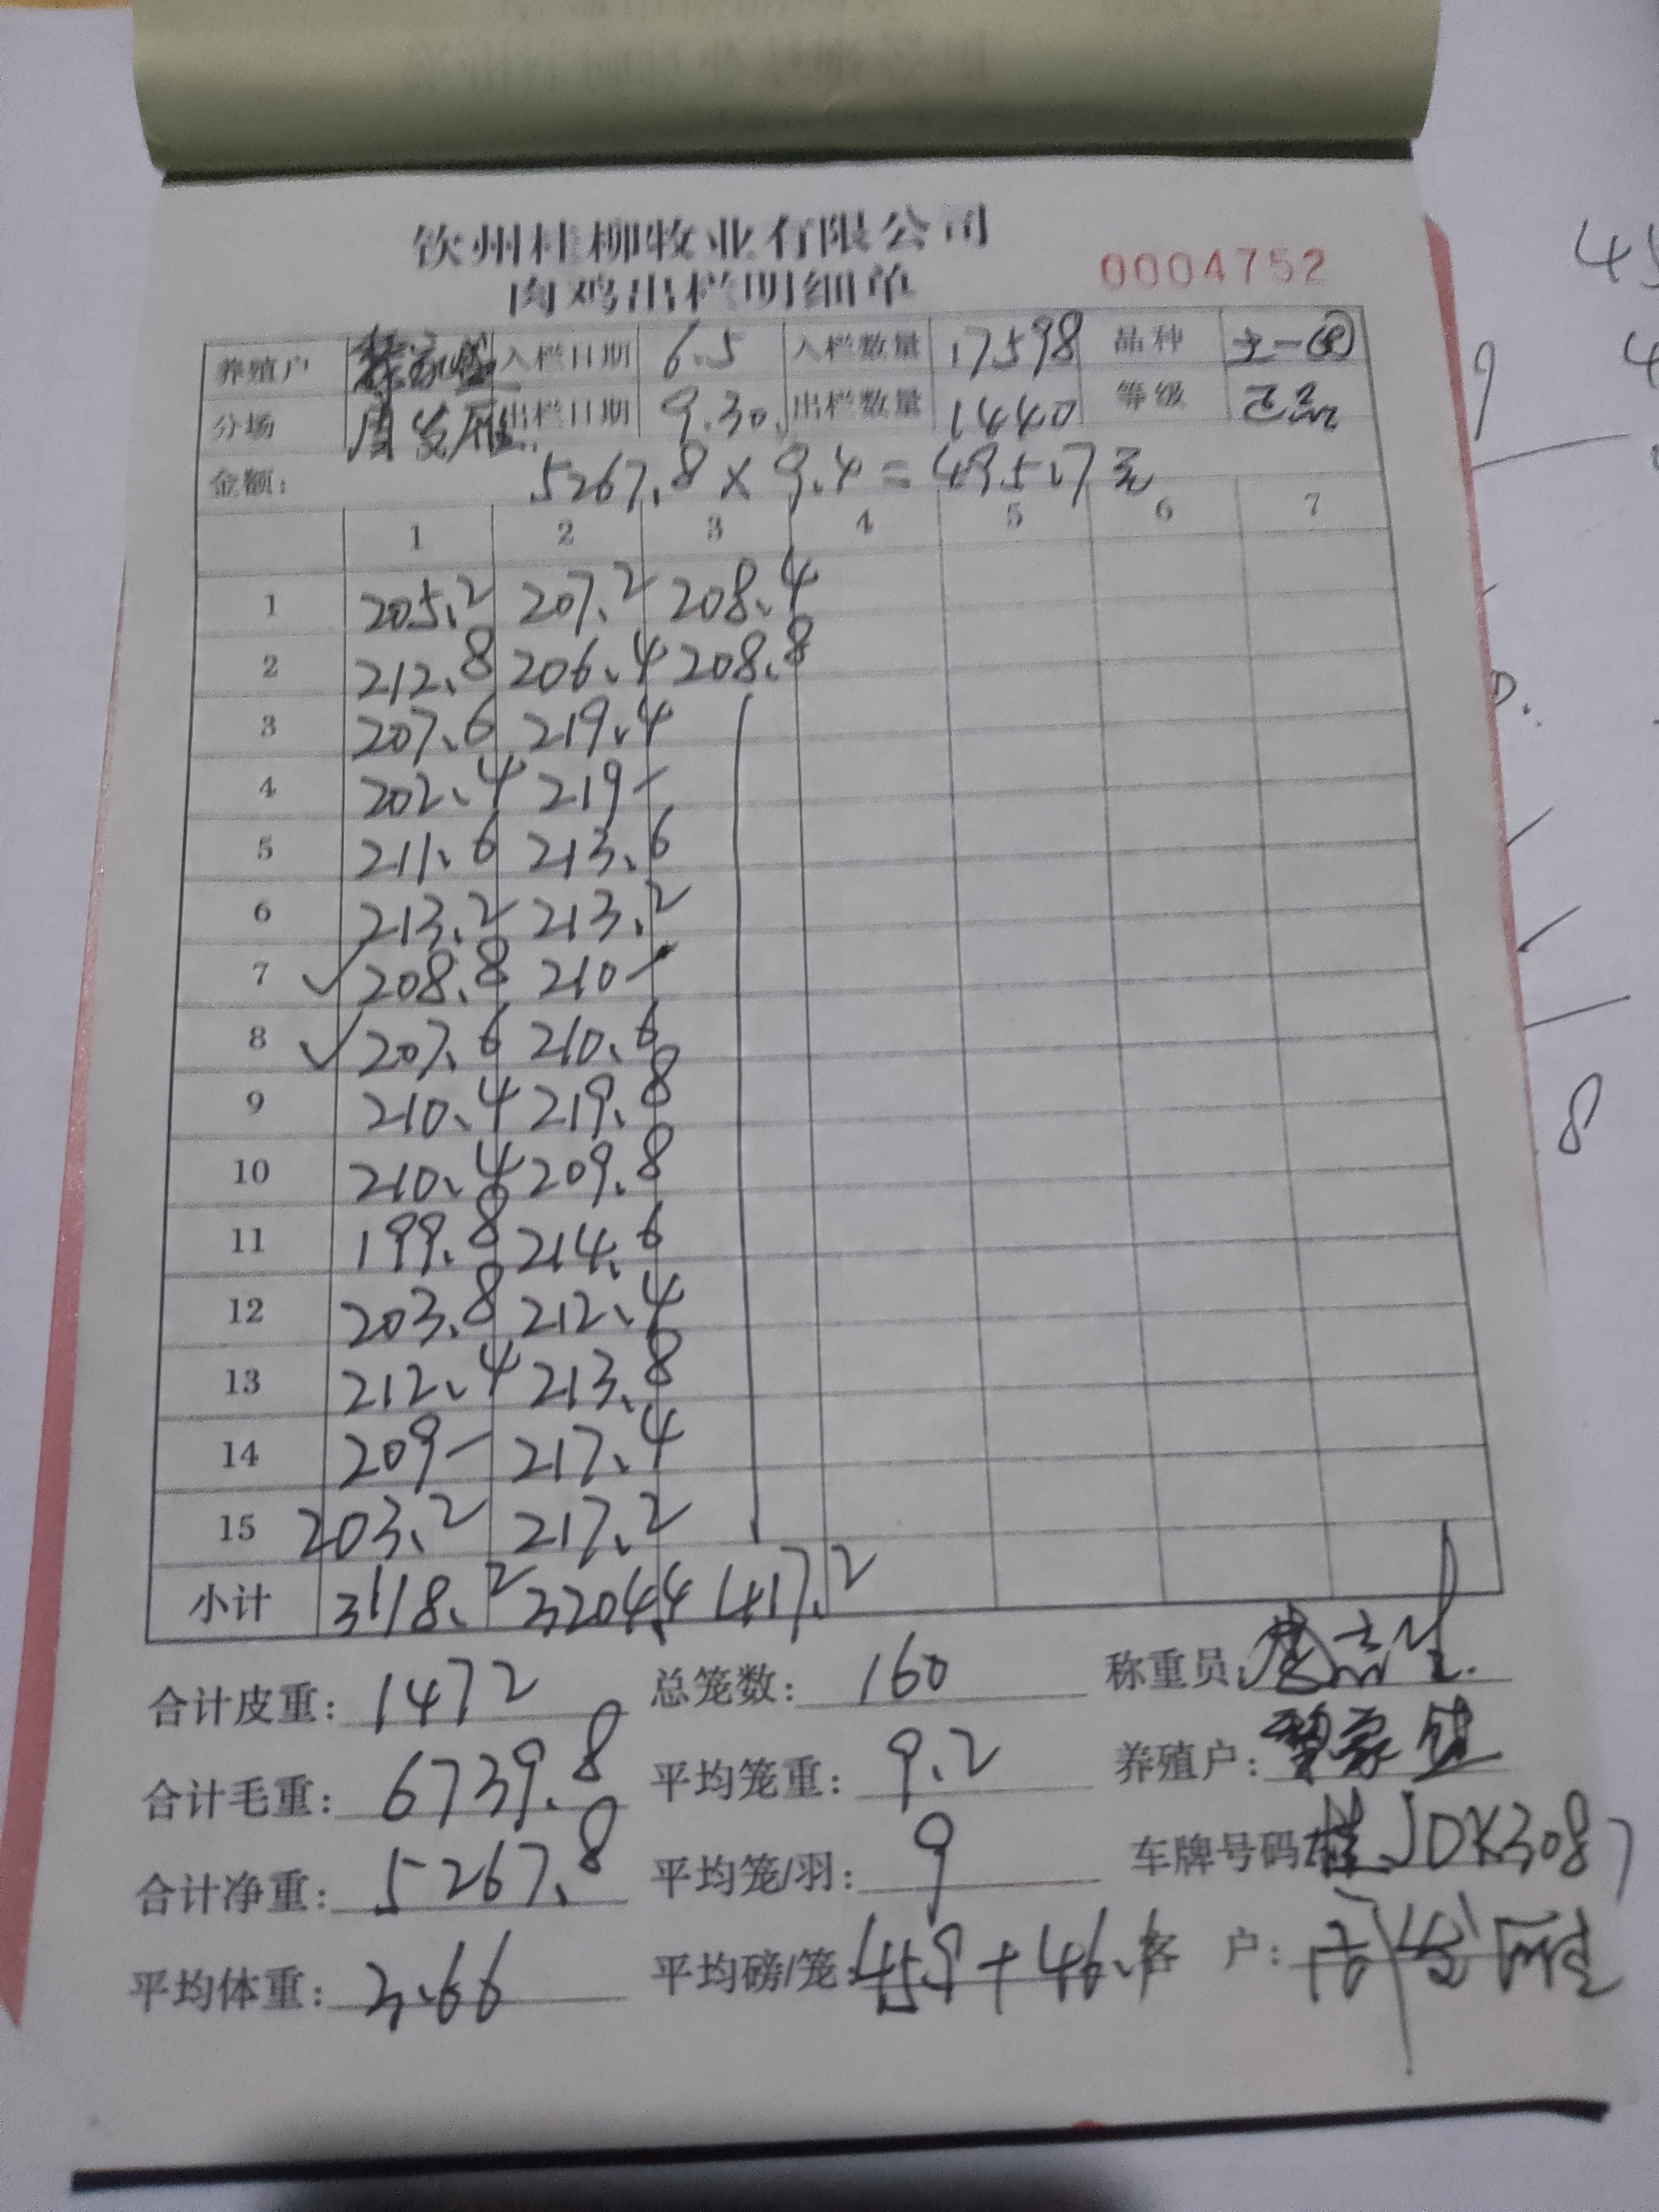 钦州桂柳牧业有限公司
肉鸡出栏明细单 0004752
养殖户 入栏日期 6.5 入栏数量 17598 品种 土一
分场 出栏日期 9.30. 出栏数量 1440 等级 正品
金额: 5267.8 × 9.4 = 49517元
1 2 3 4 5 6 7
1 205.2 207.2 208.4
2 212.8 206.4 208.8
3 207.6 219.4
4 202.4 219-
5 211.6 213.6
6 213.2 213.2
7 ✓ 208.8 210-
8 ✓ 207.6 210.6
9 210.4 219.8
10 210.4 209.8
11 199.8 214.6
12 203.8 212.4
13 212.4 213.8
14 209- 217.4
15 203.2 217.2
小计 3118.2 3204.4 417.2
合计皮重: 1472 总笼数: 160 称重员:
合计毛重: 6739.8 平均笼重: 9.2 养殖户:
合计净重: 5267.8 平均笼/羽: 9 车牌号码: 桂JDK3087
平均体重: 3.66 平均磅/笼: 459+46.1 客 户: